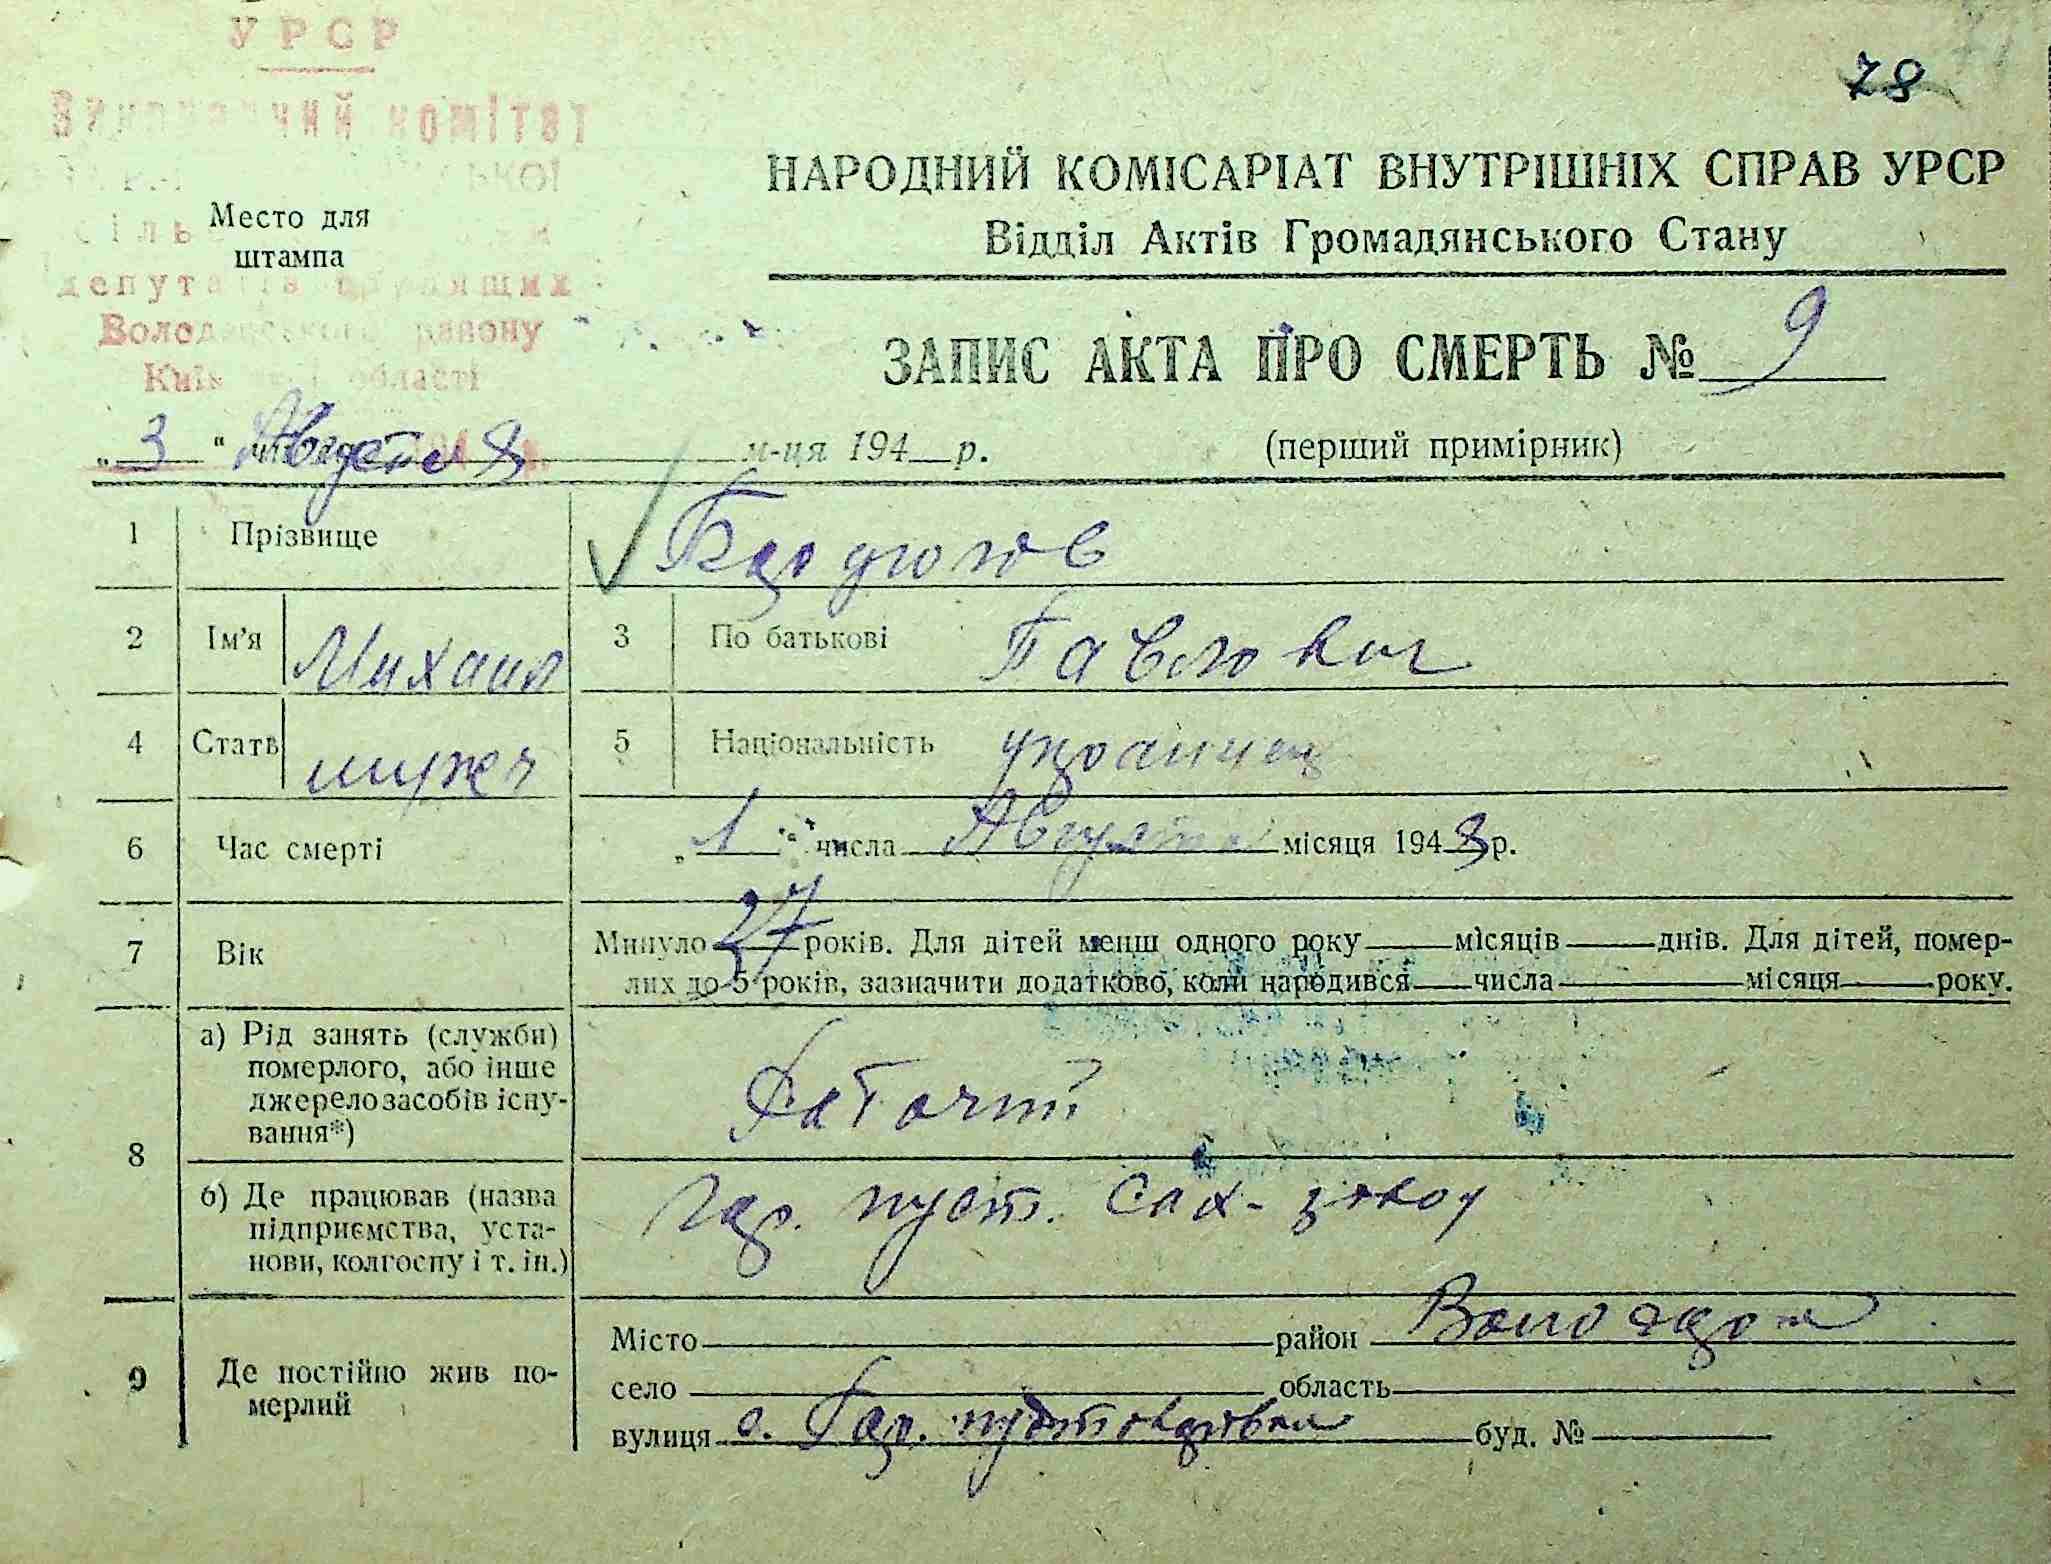 УРСР
Виконавчий комітет
78
НАРОДНИЙ КОМІСАРІАТ ВНУТРІШНІХ СПРАВ УРСР
Відділ Актів Громадянського Стану
Место для
штампа
депутатів трудящих
Володарського району
Київської області
ЗАПИС АКТА ПРО СМЕРТЬ № 9
„ 3 “ Августа м-ця 194 р.
(перший примірник)
1 Прізвище
2 Ім'я Михаил 3 По батькові Павлович
4 Стать мужч 5 Національність украинец
6 Час смерті „ 1 “ числа Августа місяця 1943 р.
7 Вік Минуло 37 років. Для дітей менш одного року місяців днів. Для дітей, помер-
лих до 5 років, зазначити додатково, коли народився числа місяця року.
8 а) Рід занять (служби)
померлого, або інше
джерело засобів існу-
вання*) Рабочий
б) Де працював (назва
підприємства, уста-
нови, колгоспу і т. ін.) Гор. пуст. сах-завод
9 Де постійно жив по-
мерлий
Місто район
село область
вулиця с. Гор. пустоваровка буд. №